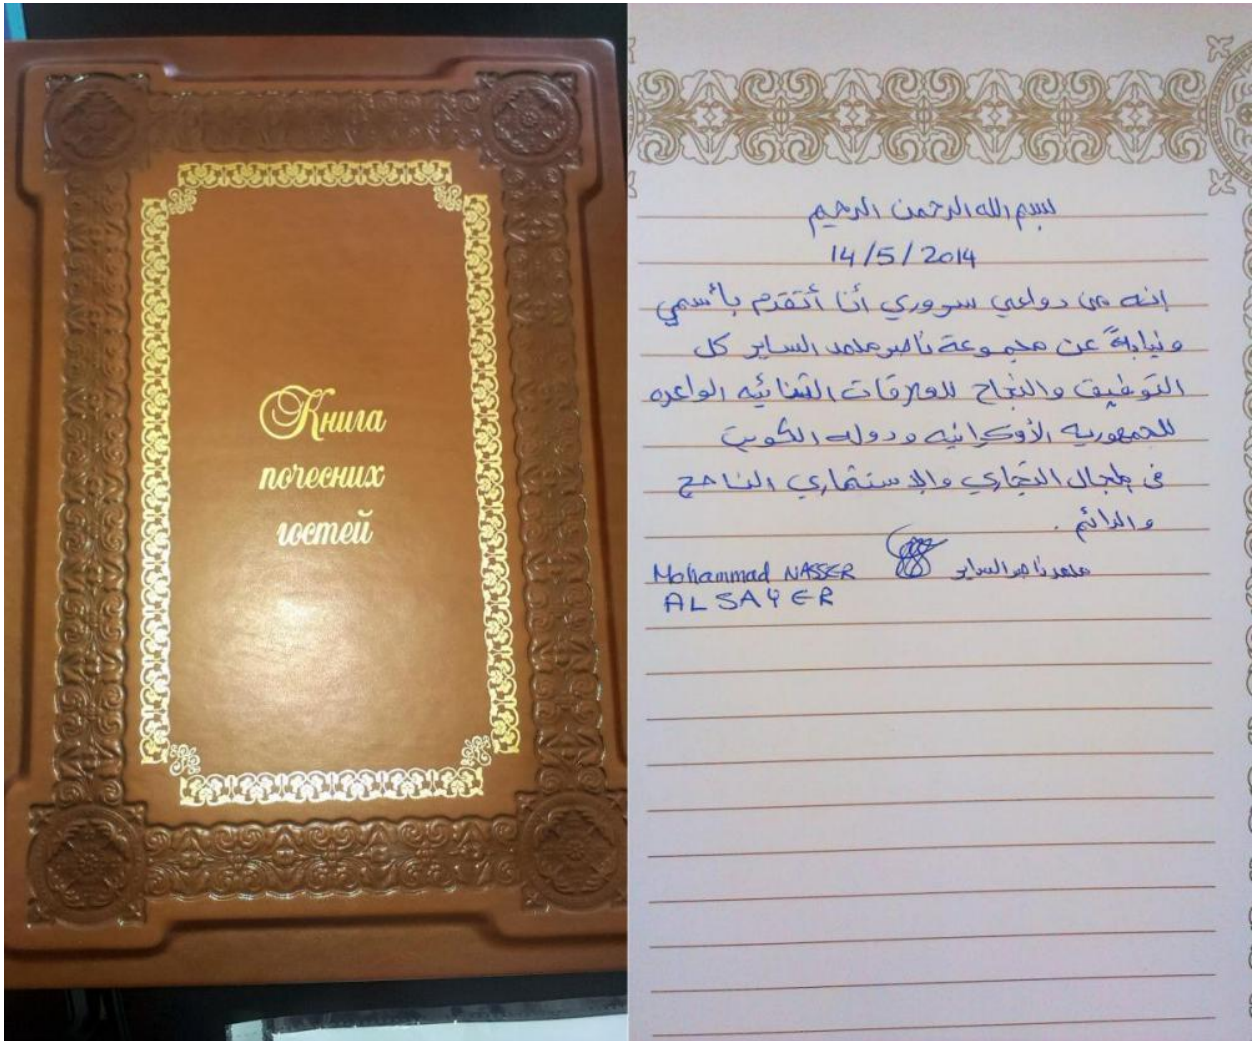 Книга
почесних
гостей
بسم الله الرحمن الرحيم
14/5/2014
إنه من دواعي سروري أنا أتقدم بأسمي
ونيابةً عن مجموعة ناصر محمد الساير كل
التوفيق والنجاح للعلاقات الثنائيه الواعده
للجمهوريه الأوكرانيه ودوله الكويت
في المجال التجاري والإستثماري الناجح
والدائم.
محمد ناصر الساير
Mohammad NASSER
ALSAYER